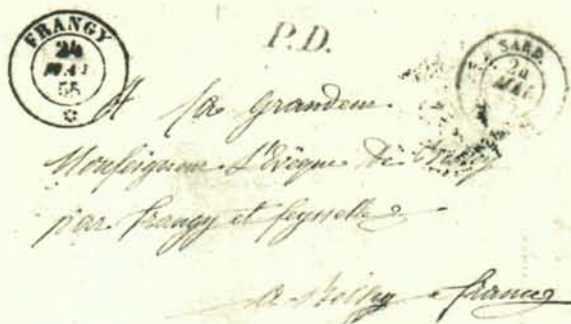 FRANGY
24
MAI
55
P.D.
SARD.
24
MAI
A Sa Grandeur
Monseigneur L'Evêque de
par Frangy et Seyssel
a Belley france